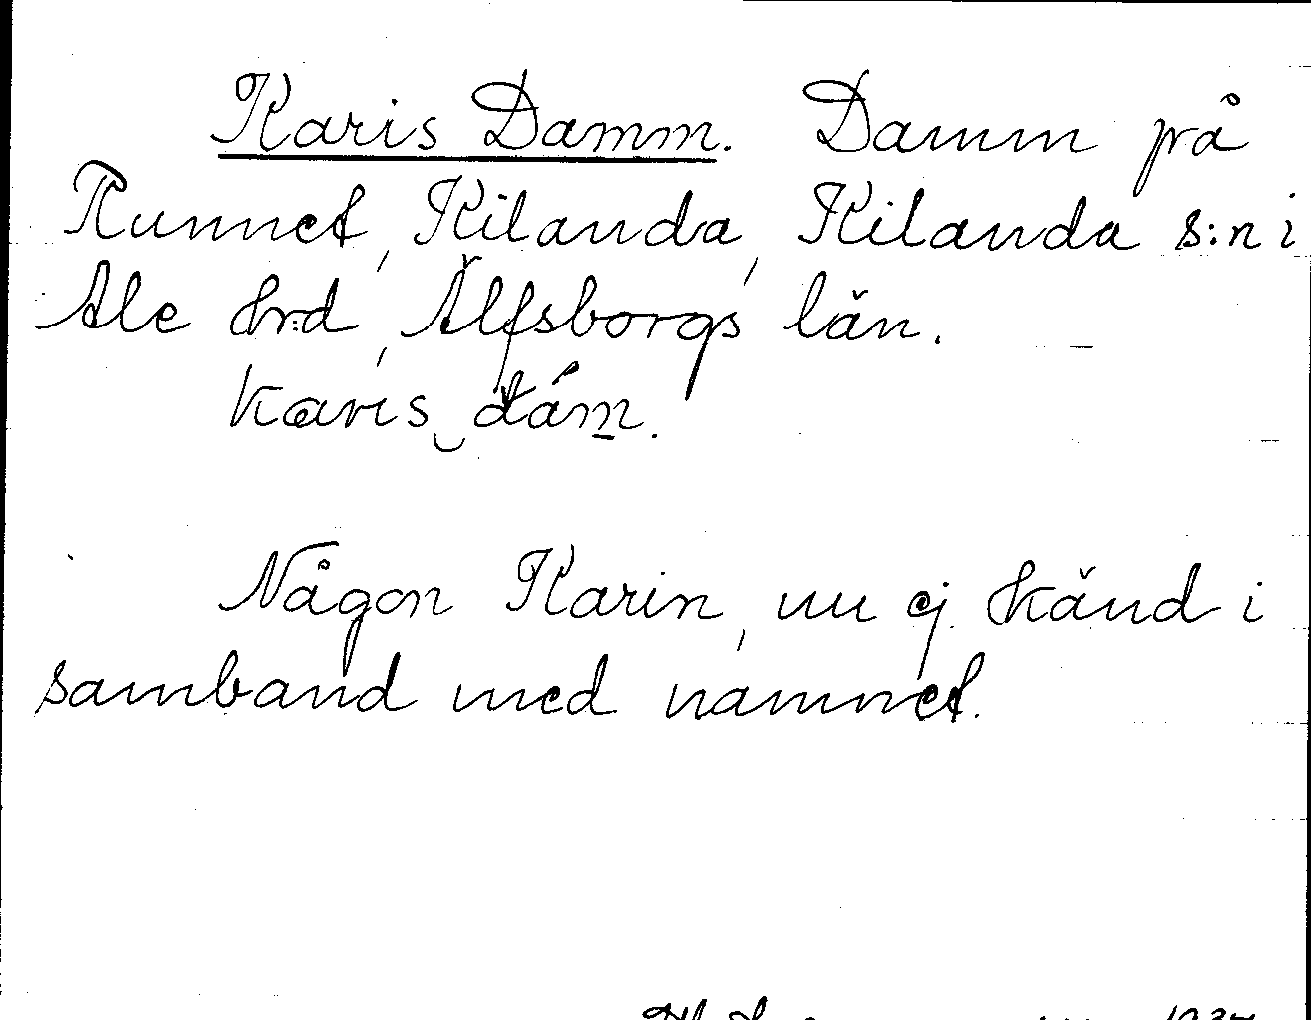 Karis Damm. Damm på
Runnet, Kilanda, Kilanda s:n i
Ale hrd, Älfsborgs län.
Någon Karin, nu ej känd i
samband med namnet.